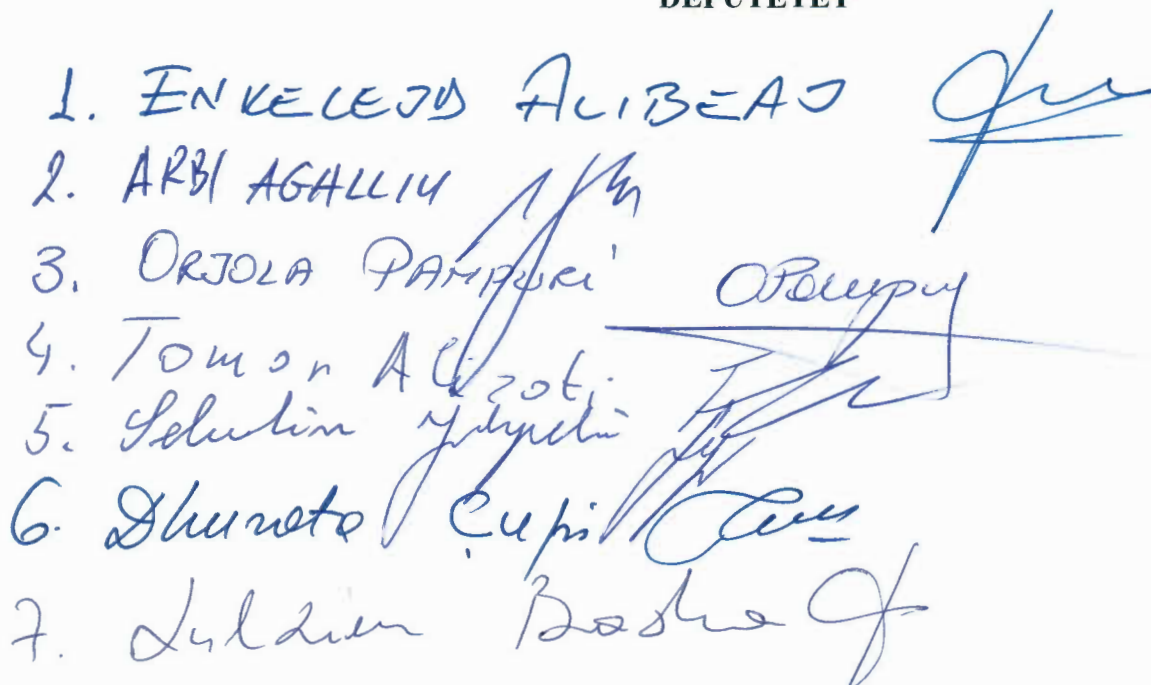 DEPUTETËT
1. ENKELEJD ALIBEAJ
2. ARBI AGALLIU
3. ORJOLA PAMPURI OPampuri
4. Tomor Alizoti
5. Selustin
6. Dhurata Çupi
7. Lulzim Basha